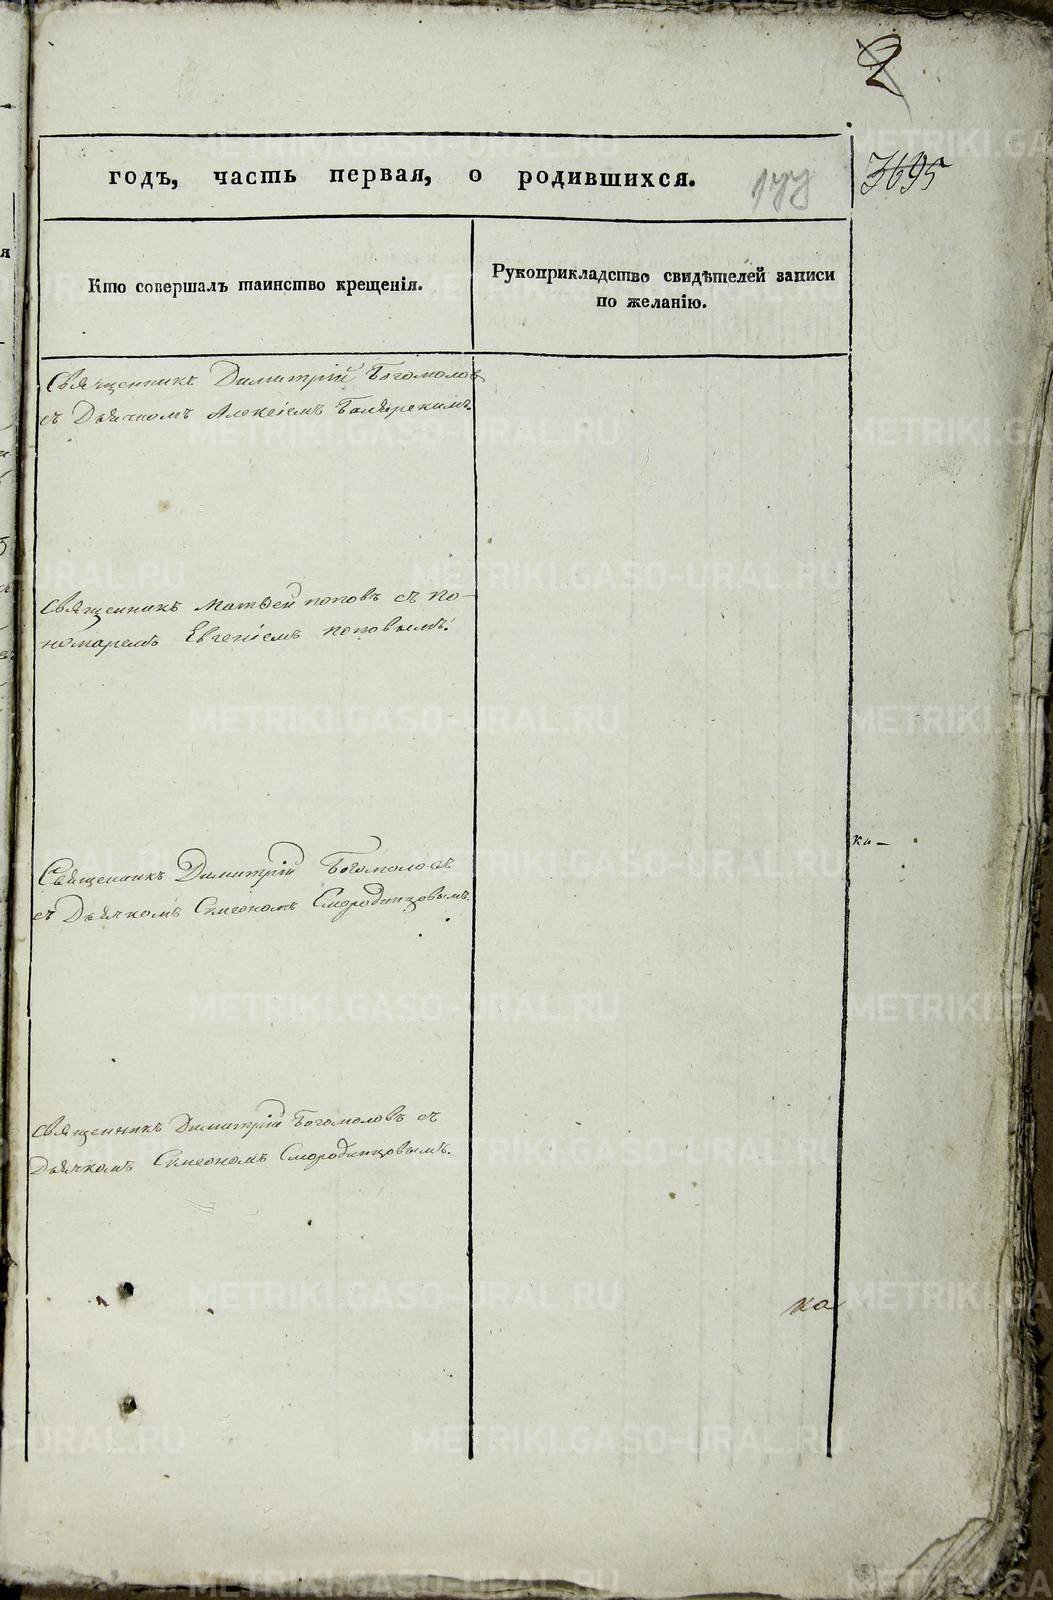 2
3695
годъ, часть первая, о родившихся.
177
Кто совершалъ таинство крещенія.
Рукоприкладство свидѣтелей записи
по желанію.
Священникъ Димитрій Богомоловъ
съ Дьячкомъ Алексіемъ
Священникъ Матѳей Поповъ съ По-
номаремъ Евгеніемъ Поповымъ.
ка
Священникъ Димитрій Богомоловъ
съ Дьячкомъ Сѵмеономъ Смородинцовымъ.
Священникъ Димитрій Богомоловъ съ
Дьячкомъ Сѵмеономъ Смородинцовымъ.
ка
METRIKI.GASO-URAL.RU